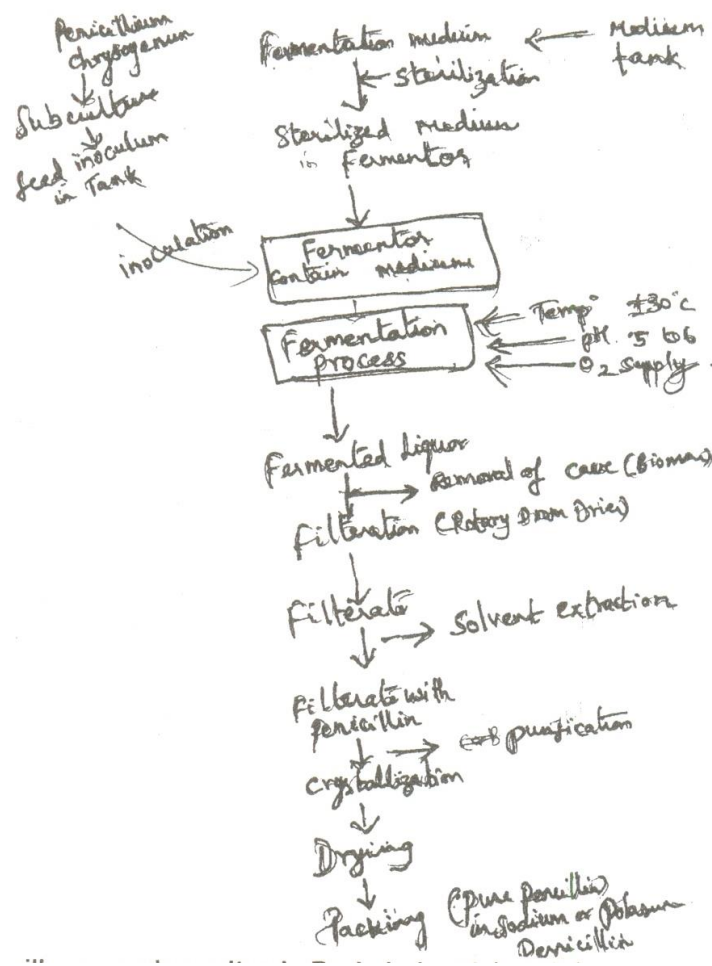 Penicillium
chrysogenum
Subculture
Seed inoculum
in Tank
inoculation
Fermentation medium
Medium
tank
Sterilization
Sterilized medium
in Fermentor
Fermentor
contain medium
Fermentation
process
Temp° ±30°c
pH 5 to6
O2 supply
Fermented Liquor
Removal of (Biomas)
Filteration (Rotary Drum Drier)
Filterate
Solvent extraction
Filterate with
penicillin
purification
Crystallization
Drying
Packing
(pure penicillin
in Sodium or